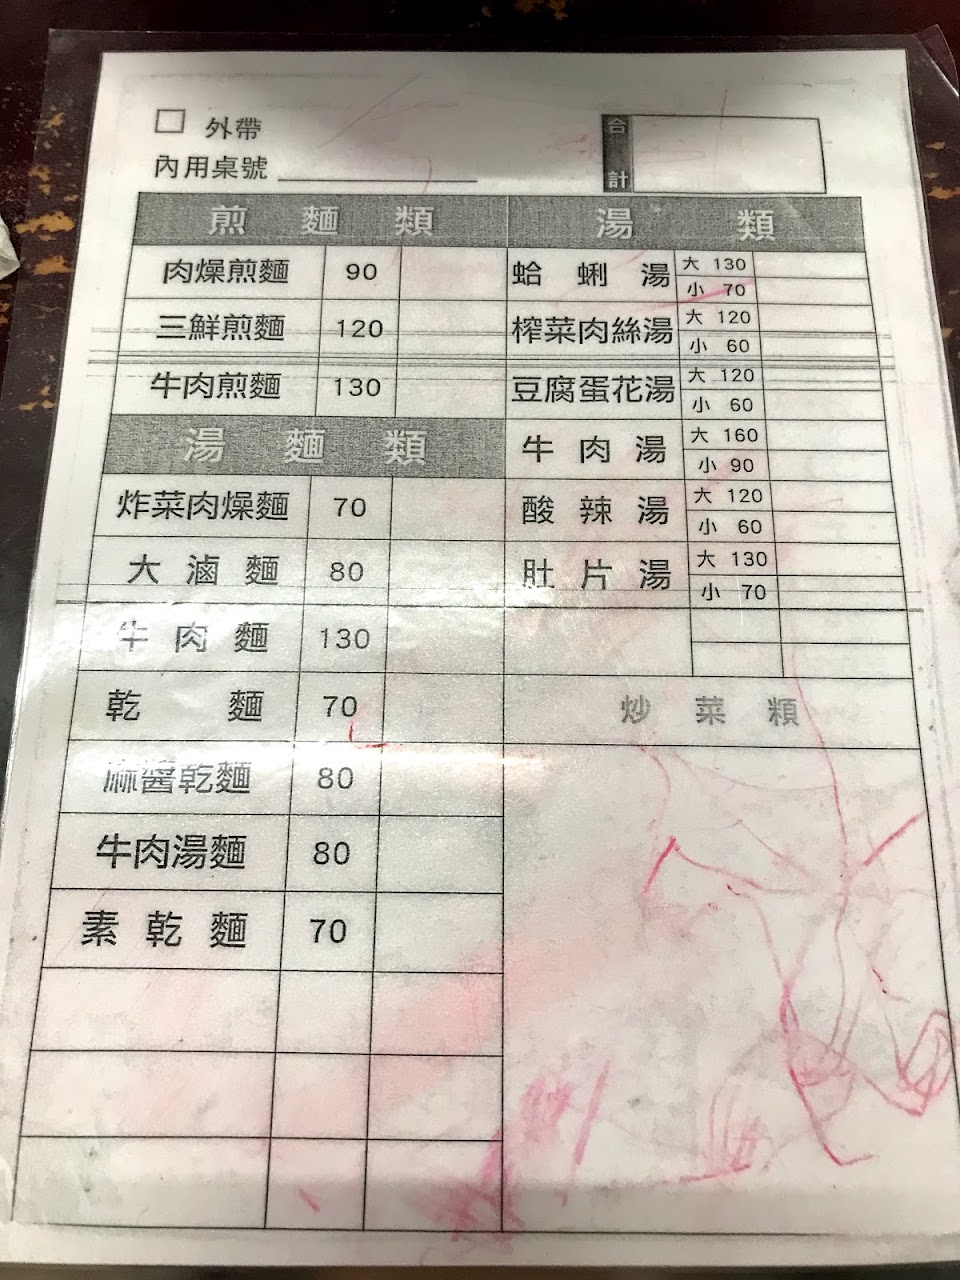 外帶
內用桌號
合計
煎麵類
肉燥煎麵 90
三鮮煎麵 120
牛肉煎麵 130
湯麵類
炸菜肉燥麵 70
大滷麵 80
牛肉麵 130
乾麵 70
麻醬乾麵 80
牛肉湯麵 80
素乾麵 70
湯類
蛤蜊湯 大 130
小 70
榨菜肉絲湯 大 120
小 60
豆腐蛋花湯 大 120
小 60
牛肉湯 大 160
小 90
酸辣湯 大 120
小 60
肚片湯 大 130
小 70
炒菜類